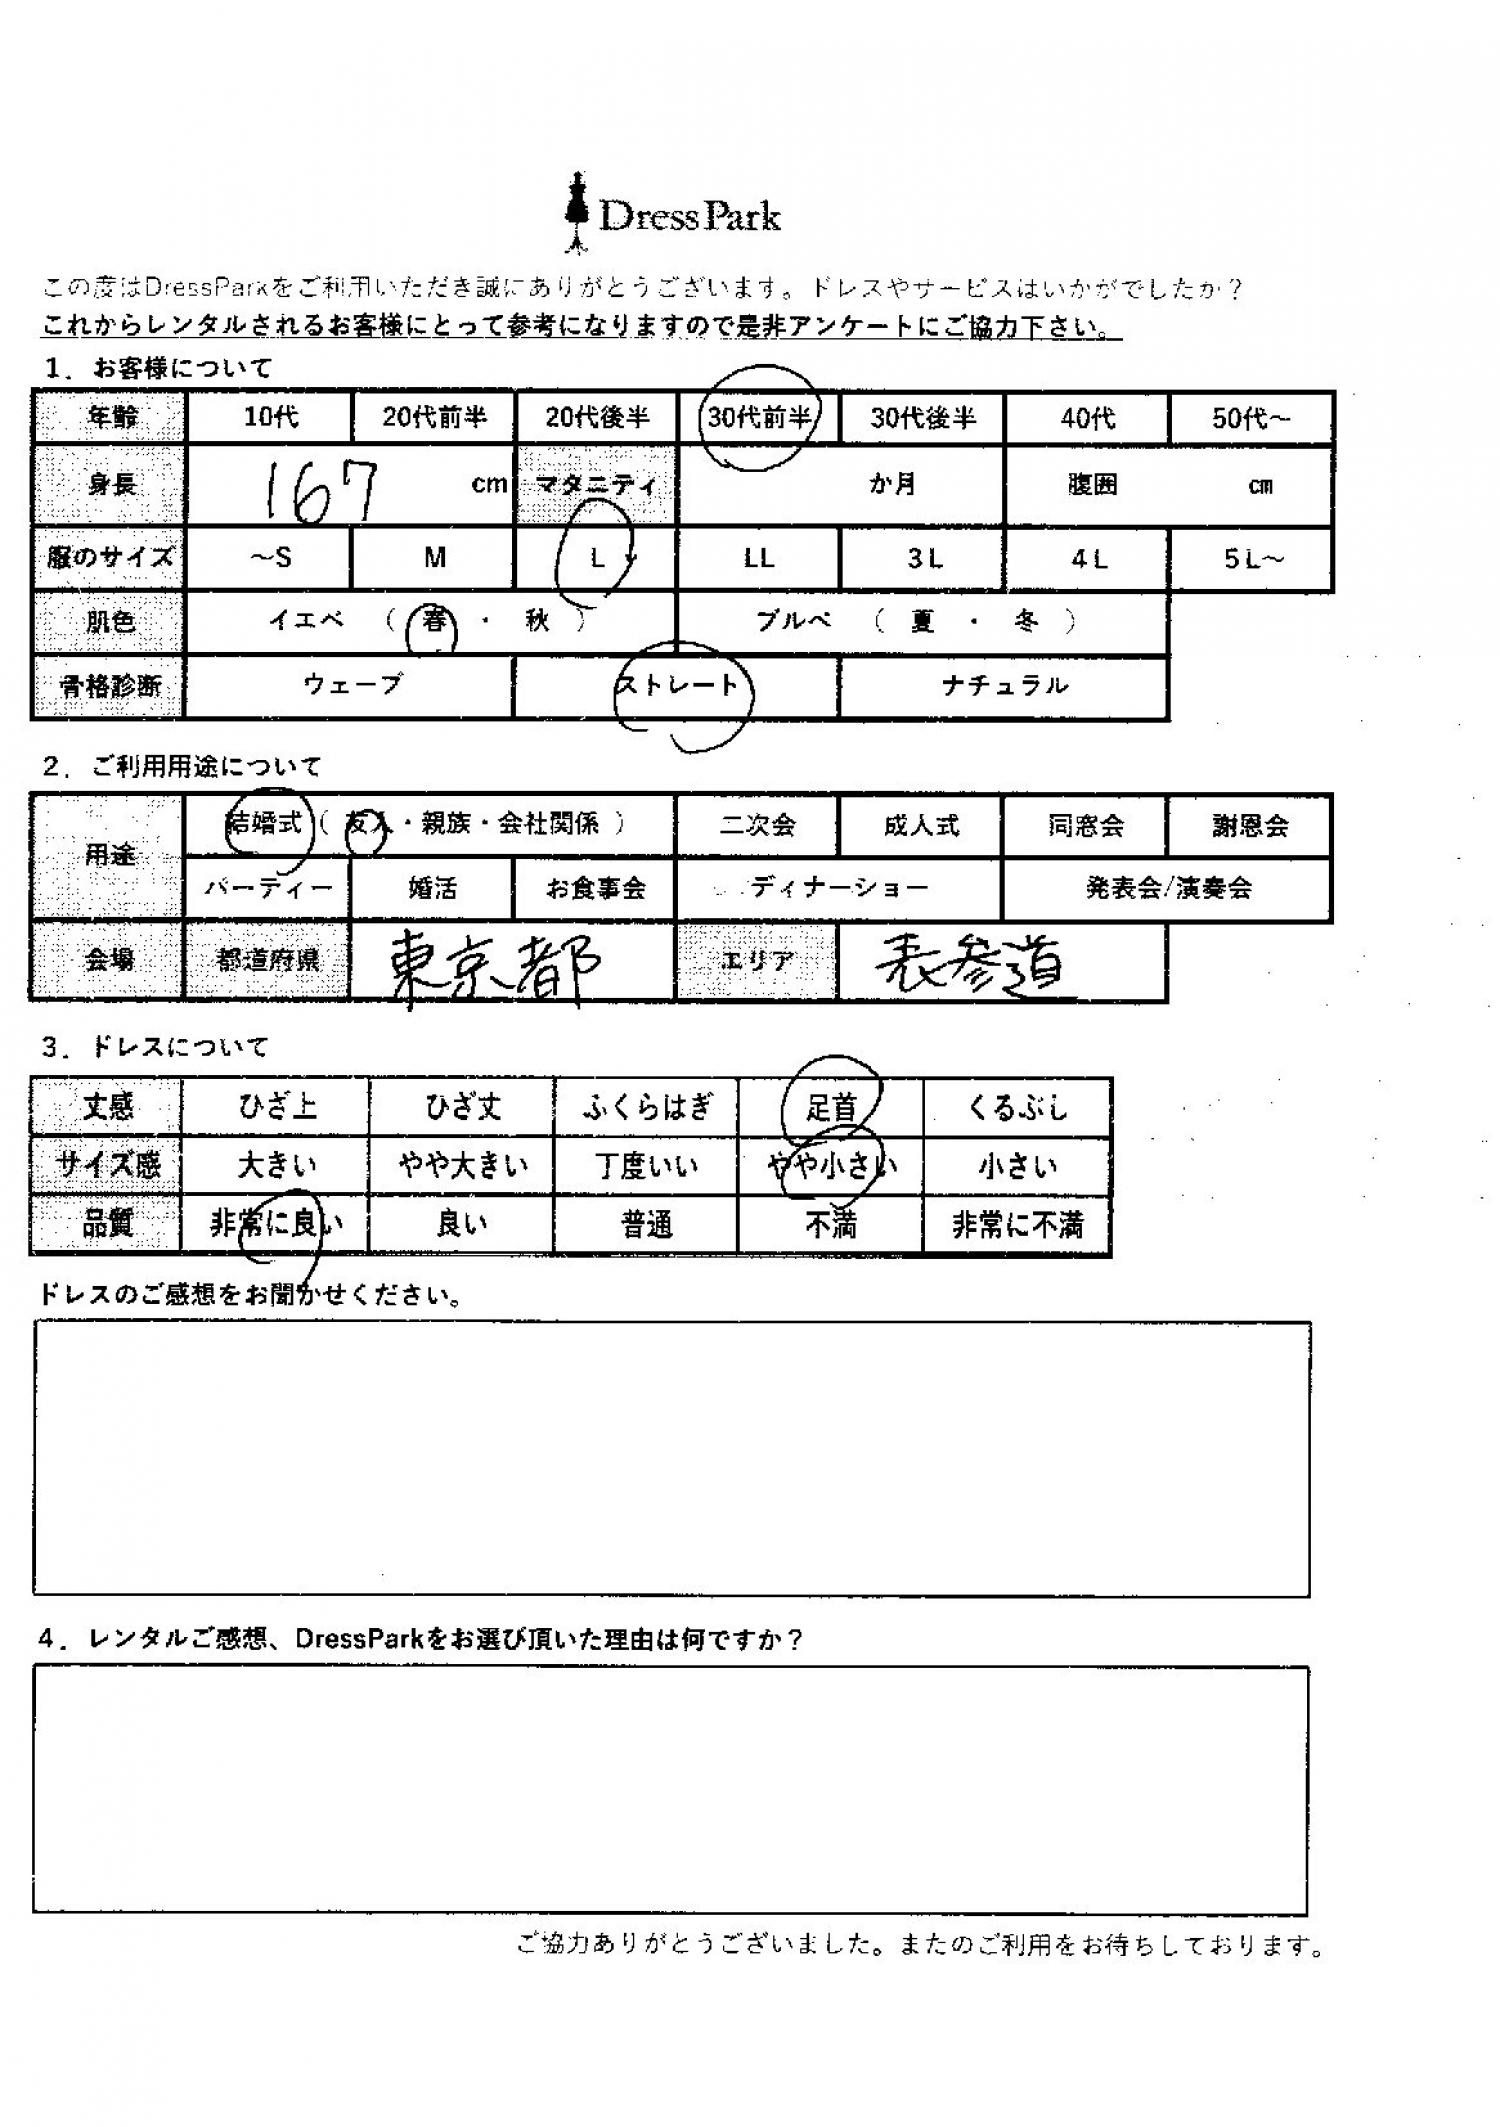 DressPark
この度はDressParkをご利用いただき誠にありがとうございます。ドレスやサービスはいかがでしたか？
これからレンタルされるお客様にとって参考になりますので是非アンケートにご協力下さい。
1．お客様について
年齢 10代 20代前半 20代後半 30代前半 30代後半 40代 50代～
身長 167 cm マタニティ か月 腹囲 cm
服のサイズ ～S M L LL 3L 4L 5L～
肌色 イエベ （ 春 ・ 秋 ） ブルベ （ 夏 ・ 冬 ）
骨格診断 ウェーブ ストレート ナチュラル
2．ご利用用途について
用途 結婚式（ 友人・親族・会社関係 ） 二次会 成人式 同窓会 謝恩会
パーティー 婚活 お食事会 ディナーショー 発表会/演奏会
会場 都道府県 東京都 エリア 表参道
3．ドレスについて
丈感 ひざ上 ひざ丈 ふくらはぎ 足首 くるぶし
サイズ感 大きい やや大きい 丁度いい やや小さい 小さい
品質 非常に良い 良い 普通 不満 非常に不満
ドレスのご感想をお聞かせください。
4．レンタルご感想、DressParkをお選び頂いた理由は何ですか？
ご協力ありがとうございました。またのご利用をお待ちしております。